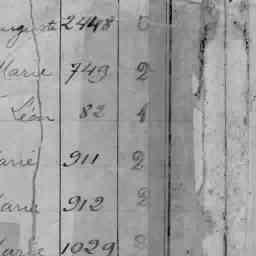 Auguste 2448 6
Marie 749 2
Léon 82 4
Marie 911 2
Marie 912 2
Marie 1029